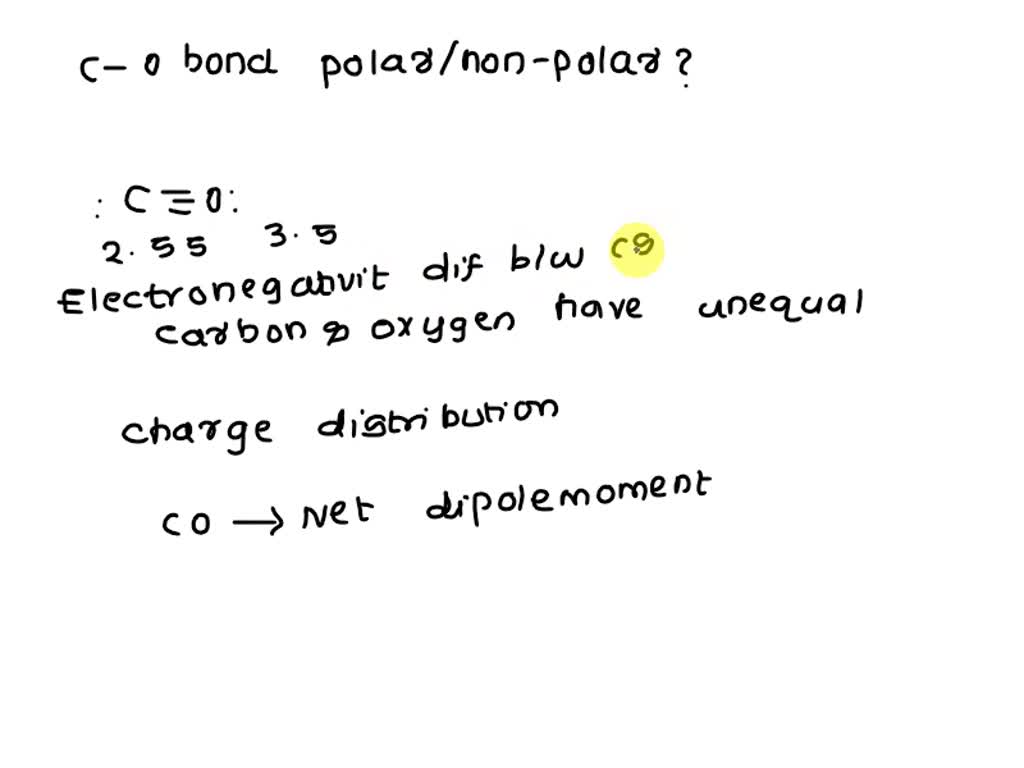 C- O bond polar/non-polar?
: C≡O:
2.55 3.5
Electronegatvit dif b/w CO
carbon & oxygen have unequal
charge distribution
CO → Net dipolemoment